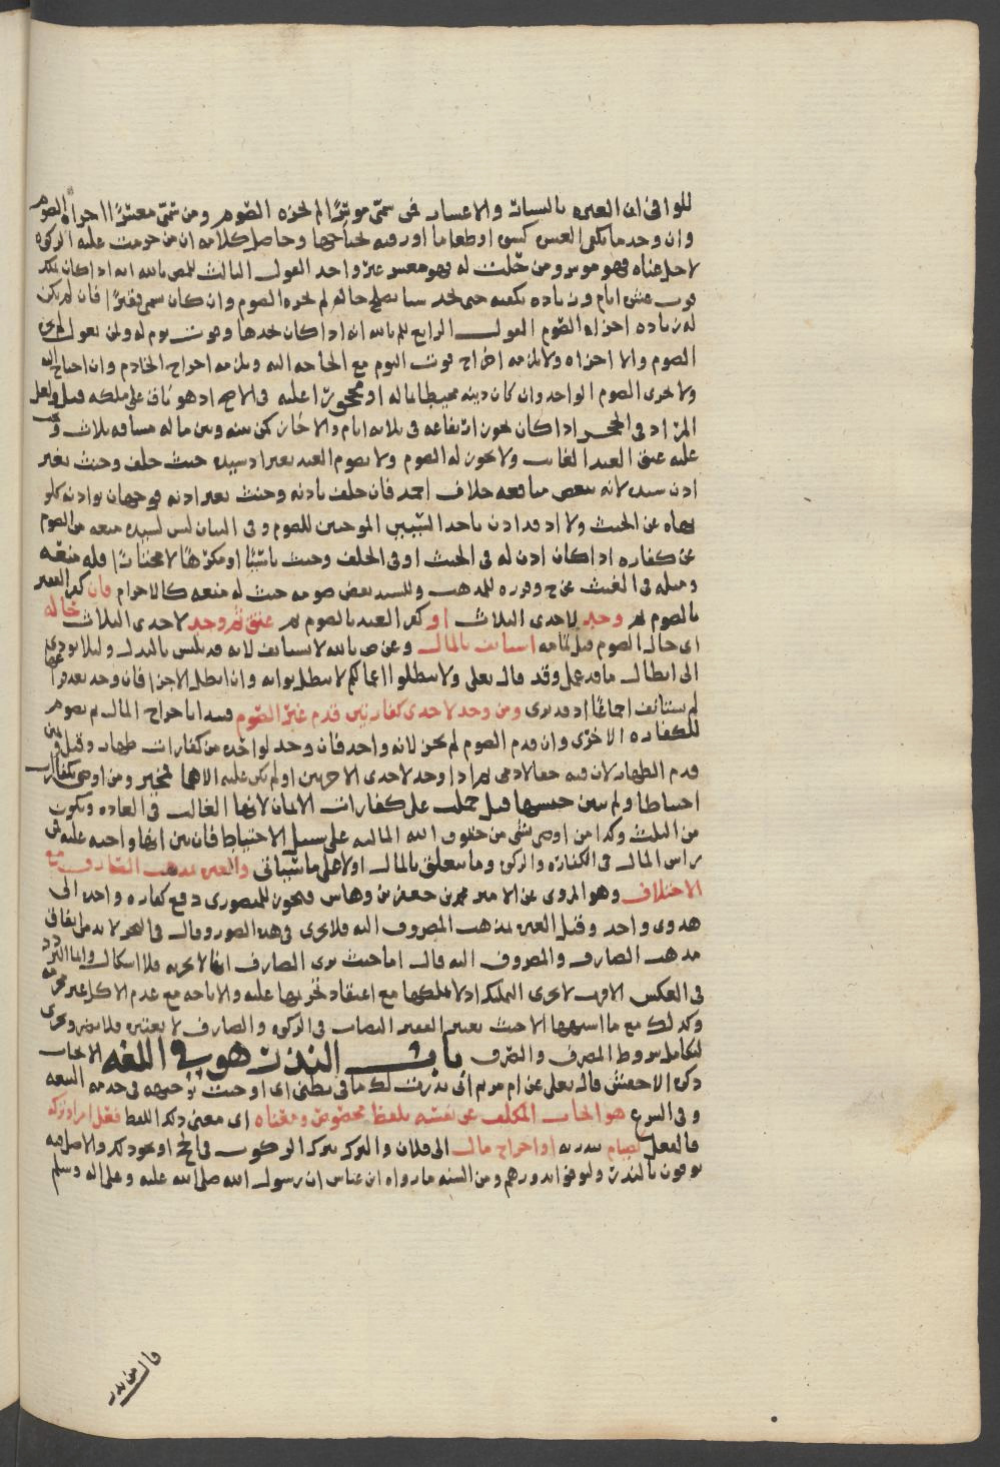 للوافي ان العبره باليسار والاعسار فمن سمي موسرًا لم يجزه الصوم ومن سمي معسرًا اجزاه الصوم
وان وجد ما يكفي العشره كسوه او طعاما او رقبه يحتاجها وحاصل كلامه ان من حرمت عليه الزكوه
لاجل غناه فهو موسر ومن حلت له فهو معسر واحد القول الثالث للم بالله انه اذا كان يملك
قوت عشره ايام وزياده يكفيه حتى يجد شيا يصلح حاله لم يجزه الصوم وان كان سمي فقيرًا فان لم يكن
له زياده اجزاه الصوم القول الرابع للم بالله انه اذا كان يجدها وقوت يوم له ولمن يعول لم يجزه
الصوم والا اجزاه ولا يلزمه اخراج قوت اليوم مع الحاجه اليه ويلزمه اخراج الخادم وان احتاج اليه
ولا يجزي الصوم الواجد وان كان دينه محيطا بماله او محجورًا عليه في الاصح اذ هو باق على ملكه قيل ولعل
المراد في الحجر اذا كان يجوز ارتفاعه في ثلاثه ايام والا كان كمن بينه وبين ماله مسافه ثلاث
عليه عتق العبد الغايب ولا يجوز له الصوم ولا يصوم العبد بغير اذن سيده حيث حلف وحنث بغير
اذن سيده لانه ينقص منافعه خلاف احمد فان حلف باذنه وحنث بغير اذنه فوجهان
نهاه عن الحنث ولا اذ قد اذن باحد السببين الموجبين للصوم وفي البيان ليس لسيده منعه من الصوم
عن كفاره اذا كان اذن له في الحنث او في الحلف وحنث ناسيًا او مكرهًا لا مختارًا فله منعه
ومثله في الغيث عن ح وقرره للمذهب وللسيد نقض صومه حيث له منعه كالاحرام فان كفر العبد
بالصوم ثم وجد لاحدى الثلاث او كفر العبد بالصوم ثم عتق ثم وجد لاحدى الثلاث حاله
اي حال الصوم قبل تمامه استانف بالمال وعن ص بالله لا يستانف لانه قد تلبس بالبدل وليلا يودي
الى ابطال ما قد عمل وقد قال تعالى ولا تبطلوا اعمالكم لا يبطل ثوابه وان ابطل الاجزا فان وجد بعد
لم يستانف اجماعًا اذ قد برى ومن وجد لاحدى كفارتين قدم غير الصوم فيبدا باخراج المال ثم يصوم
للكفاره الاخرى وان قدم الصوم لم يجز لانه واجد فان وجد لواحده من كفارات ظهار وقتل ويمين
قدم الظهار لان فيه حقا لادمي ثم اذا وجد لاحدى الاخريين او لم يكن عليه الا هما فمخير ومن اوصى بكفارات
احتياطا ولم يبين جنسها قيل حملت على كفارات الايمان لانها الغالب في العاده وتكون
من الثلث وكذا من اوصى بشي من حقوق الله الماليه على سبيل الاحتياط فان بين انها واجبه عليه فمن
راس المال في الكفاره والزكوه وما يتعلق بالمال اولا على ما سياتي والعبره بمذهب الصارف مع
الاختلاف وهو المروي عن الامير محمد بن جعفر بن وهاس فيجوز للمنصوري دفع كفاره واحده الى
هدوي واحد وقيل العبره بمذهب المصروف اليه فلا يجزي في هذه الصوره وقال في البحر لا بد من اتفاق
مذهب الصارف والمصروف اليه قال اما حيث يرى الصارف انها لا تجزيه فلا اشكال وانما التردد
في العكس الاقرب لا يجزي التمليك اذ لا يملكها مع اعتقاد تحريمها عليه والاباحه مع عدم الاكل غير مجزيه
وكذلك مع ما اشبهها الا حيث يعتبر الفقير النصاب في الزكوه والصارف لا يعتبره فلا يضر ويجزي
لتكامل شروط المصرف والصرف باب النذر هو في اللغه الايجاب
ذكره الاخفش قال تعالى عن ام مريم اني نذرت لك ما في بطني اي اوجبت توجيهه في خدمه البيعه
وفي الشرع هو ايجاب المكلف على نفسه بلفظ مخصوص ومعناه اي معنى ذلك اللفظ فعل امر او تركه
فالفعل لصيام ينذر به او اخراج مال الى فلان والترك بترك الركوب في الحج او نحو ذلك والاصل فيه
يوفون بالنذر وليوفوا نذورهم ومن السنه ما رواه ابن عباس ان رسول الله صلى الله عليه وعلى اله وسلم
قال من نذر